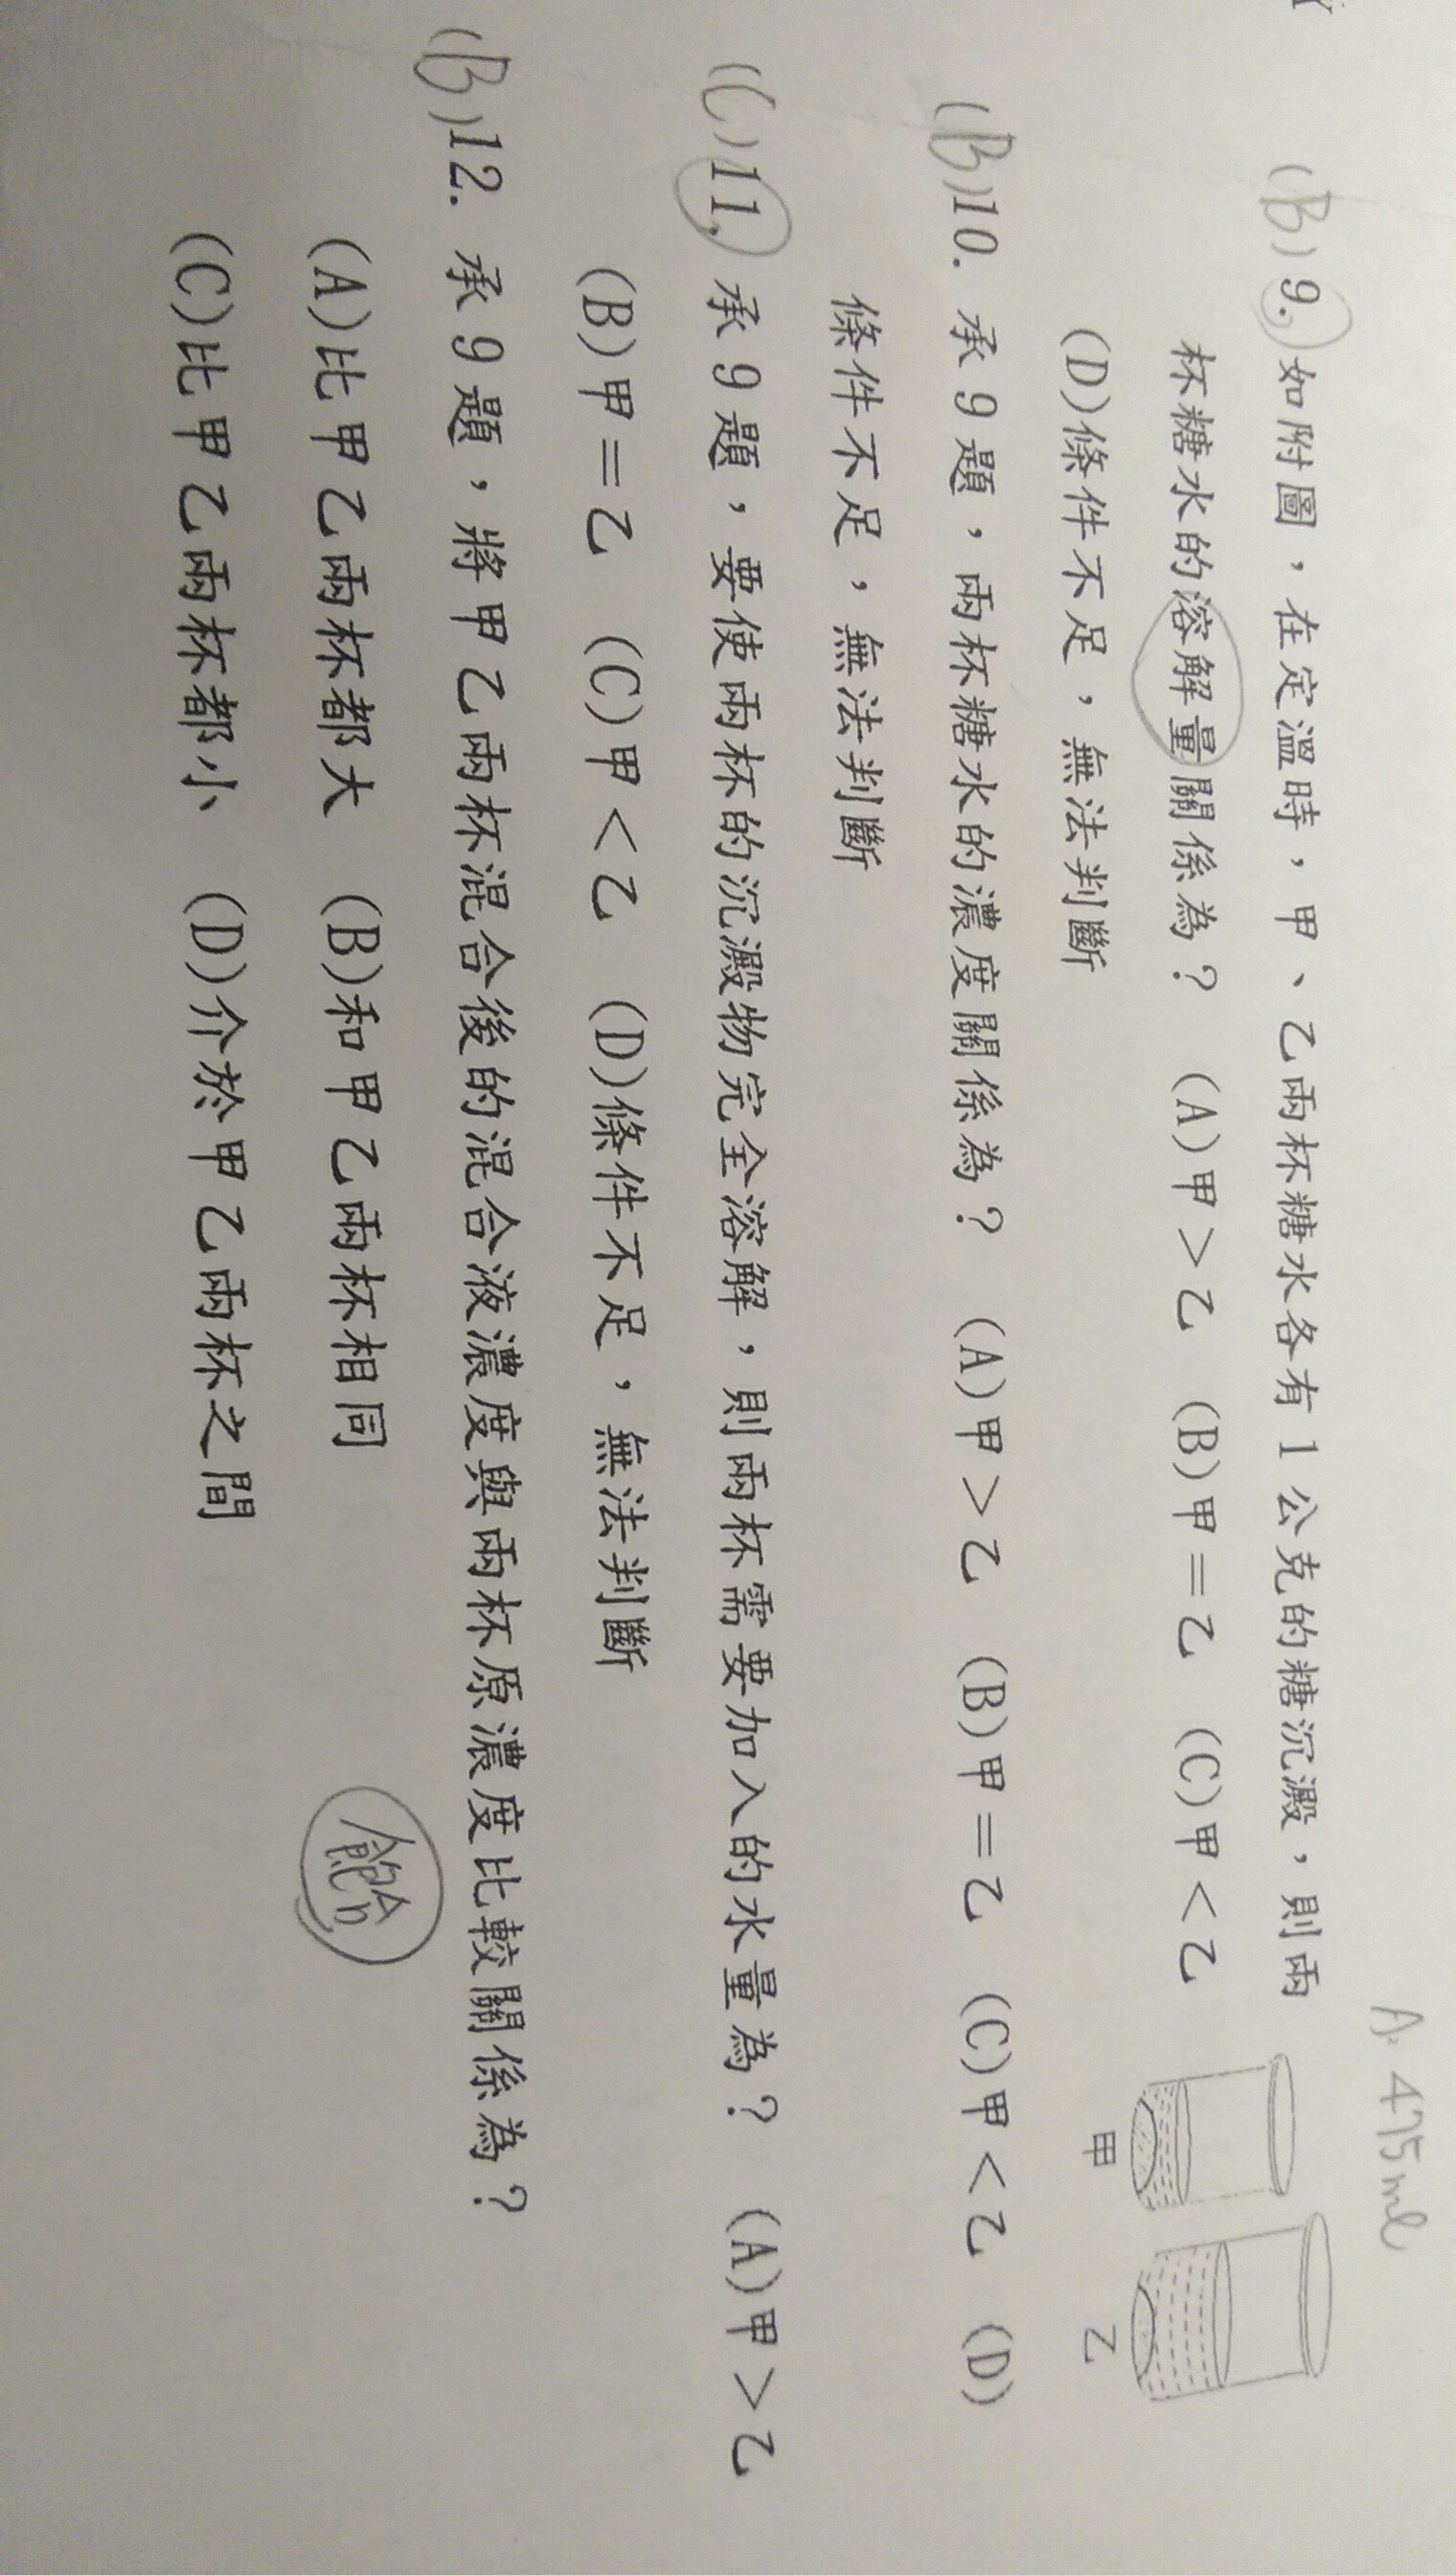 A: 475ml
(B) 9. 如附圖，在定溫時，甲、乙兩杯糖水各有1公克的糖沉澱，則兩
杯糖水的溶解量關係為？ (A)甲＞乙 (B)甲＝乙 (C)甲＜乙
(D)條件不足，無法判斷
甲 乙
(B)10. 承9題，兩杯糖水的濃度關係為？ (A)甲＞乙 (B)甲＝乙 (C)甲＜乙 (D)
條件不足，無法判斷
(C)11. 承9題，要使兩杯的沉澱物完全溶解，則兩杯需要加入的水量為？ (A)甲＞乙
(B)甲＝乙 (C)甲＜乙 (D)條件不足，無法判斷
(B)12. 承9題，將甲乙兩杯混合後的混合液濃度與兩杯原濃度比較關係為？
(A)比甲乙兩杯都大 (B)和甲乙兩杯相同
(C)比甲乙兩杯都小 (D)介於甲乙兩杯之間
飽和